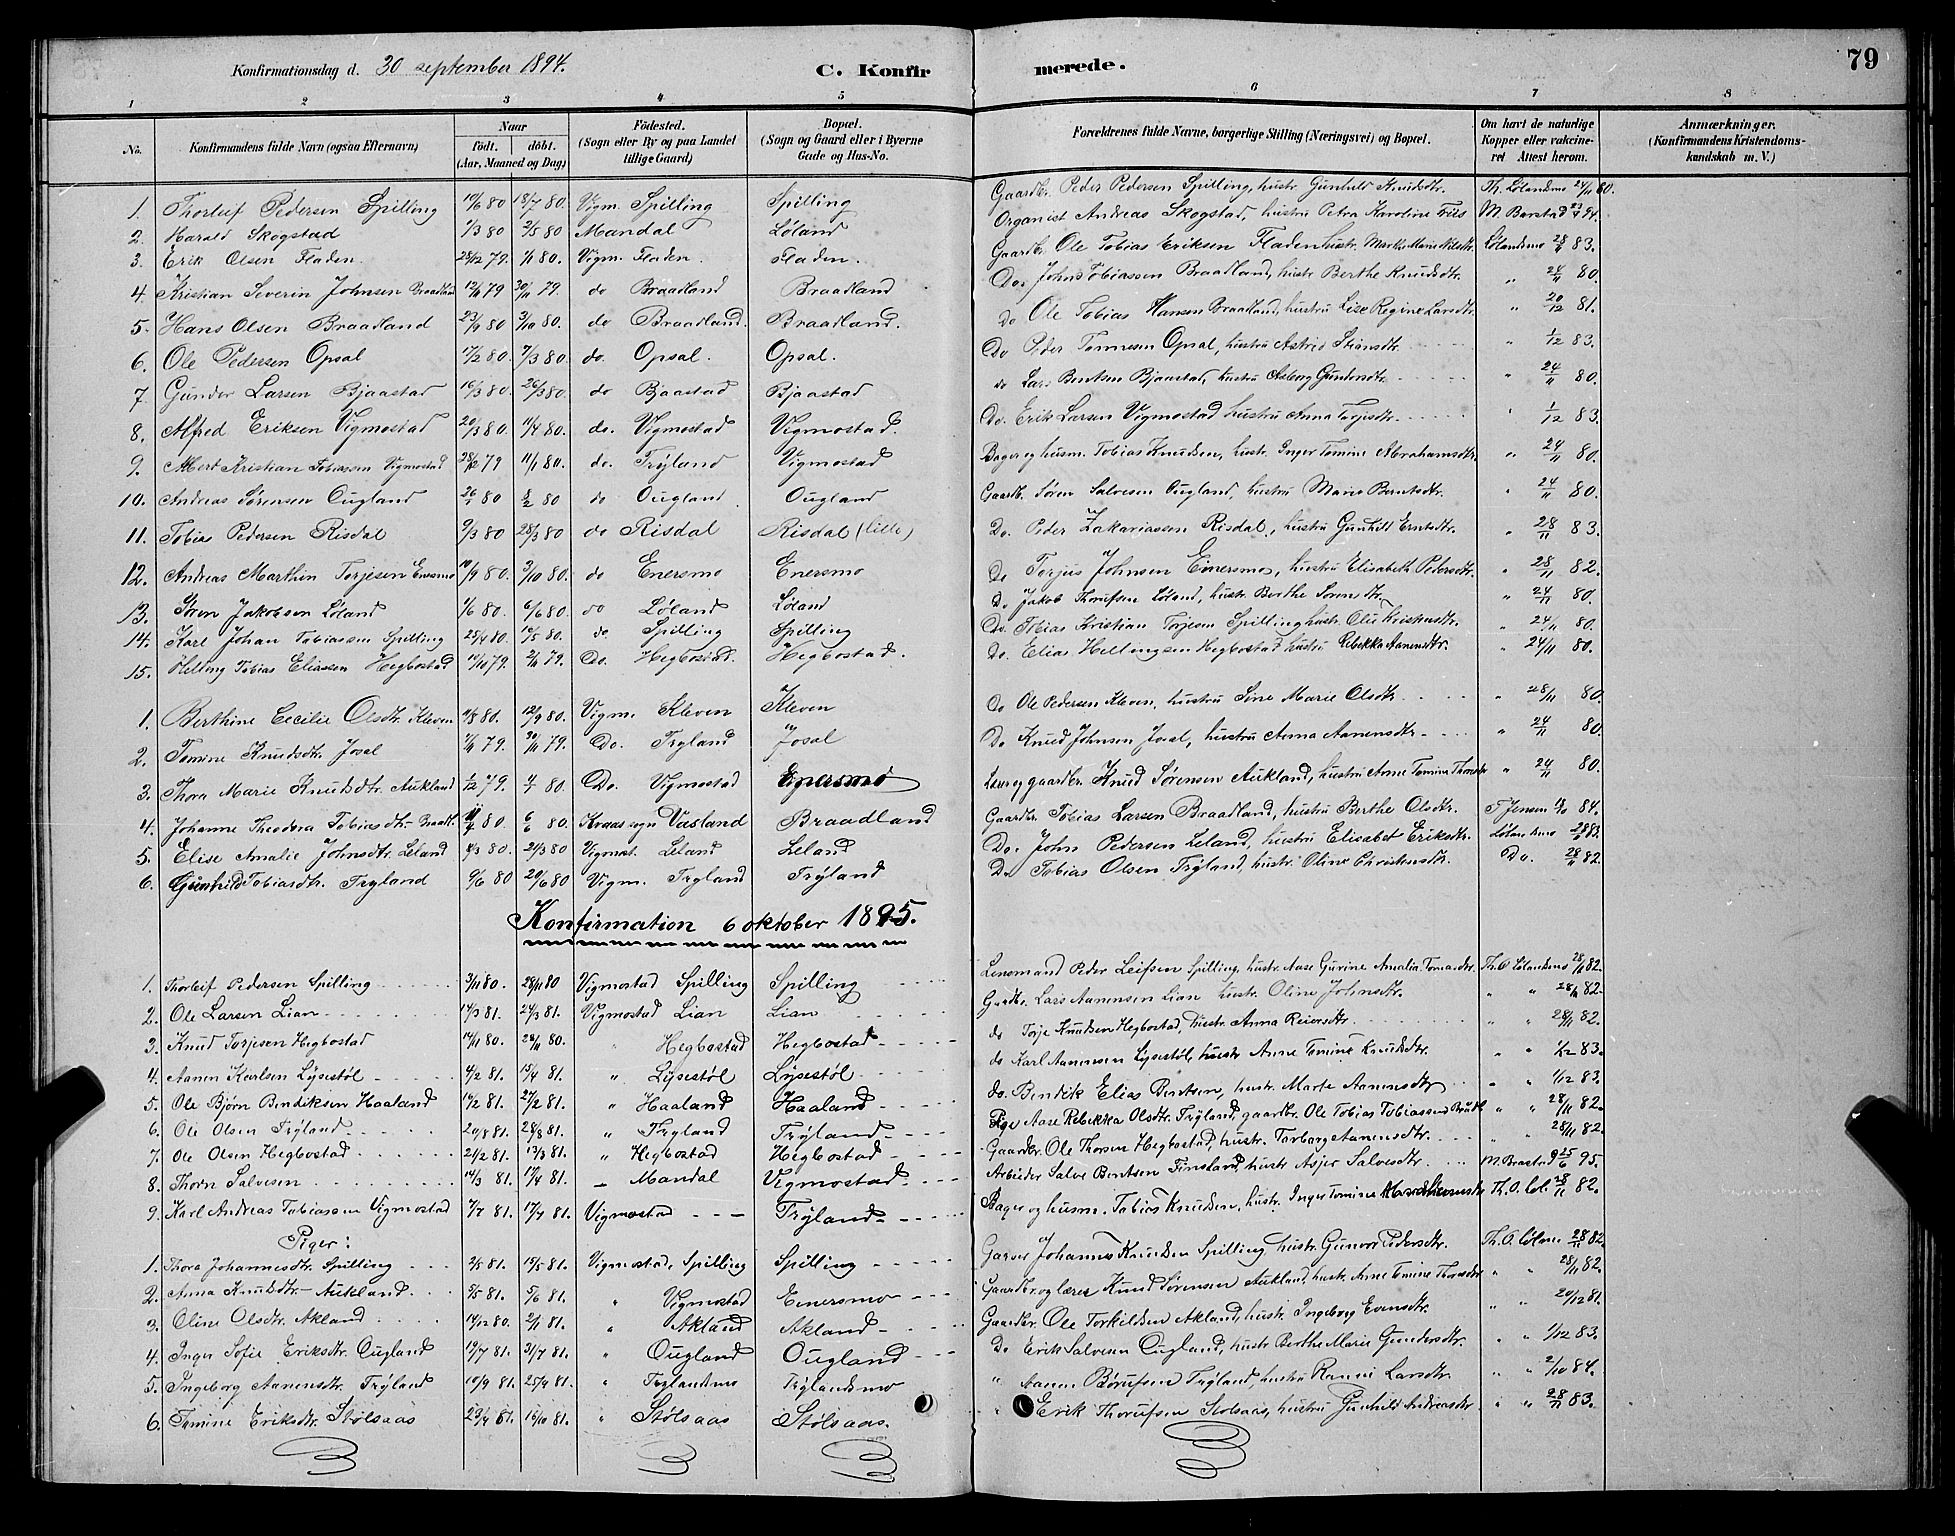 Konfirmationsdag d. 30 september 1894. C. Konfirmerede. 79
1 2 3 4 5 6 7 8
No. Konfirmandens fulde Navn (ogsaa Efternavn) Naar födt. döbt. (Aar, Maaned og Dag) Födested. (Sogn eller By og paa Landet tillige Gaard) Bopæl. (Sogn og Gaard eller i Byerne Gade og Hus-No. Forældrenes fulde Navne, borgerlige Stilling (Næringsvei) og Bopæl. Om havt de naturlige Kopper eller vakcineret Attest herom. Anmærkninger. (Konfirmandens Kristendomskundskab m. V.)
1. Thorleif Pedersen Spilling 19/6 80 18/7 80. Vigm. Spilling Spilling Gaardbr. Peder Pedersen Spilling, hustr. Gunhild Knudsdtr. Th. Lølandsmo 24/11 80.
2. Harald Skogstad 1/3 80 2/5 80 Mandal Løland Organist Andreas Skogstad, hustru Petra Karoline Friis M. Barstad 23/4 94.
3. Erik Olsen Fladen. 28/12 79. 1/1 80. Vigm. Fladen. Fladen. Gaardbr. Ole Tobias Eriksen Fladen hustr. Marthe Marie Nilsdtr. Lølandsmo 28/11 83.
4. Kristian Severin Johnsen Braadland 12/11 79 30/11 79. do Braadland Braadland Do. John Tobiassen Braadland, hustr. Berthe Knudsdtr. " 24/11 80.
5. Hans Olsen Braadland 23/9 80 3/10 80. do Braadland. Braadland. Do Ole Tobias Hansen Braadland, hustru Lise Regine Larsdtr. " 20/12 81.
6. Ole Pedersen Opsal 17/2 80. 7/3 80. do. Opsal. Opsal. Do Peder Tønnesen Opsal, hustru Astrid Stiansdtr. " 1/12 83.
7. Gunder Larsen Bjaastad 16/3 80. 26/3 80. do Bjaastad Bjaastad do Lars Bentsen Bjaastad, hustru Asborg Gundersdtr. " 24/11 80.
8. Alfred Eriksen Vigmostad 20/3 80. 11/4 80. do. Vigmostad Vigmostad. Do. Erik Larsen Vigmostad hustru Anna Torjesdtr. " 1/12 83.
9. Albert Kristian Tobiassen Vigmostad 28/12 79 11/1 80. do. Trÿland Vigmostad Bager og husm. Tobias Knudsen, hustr. Inger Tomine Abrahamsdtr. " 24/11 80.
10. Andreas Sørensen Ougland 26/1 80 8/2 80 do Ougland Ougland Gaardb. Søren Salvesen Ougland, hustru Maris Berntsdtr. " 24/11 80.
11. Tobias Pedersen Risdal 9/3 80 28/3 80 do Risdal Risdal (lille) Do. Peder Zakariassen Risdal, hustru Gunhild Erntsdtr. " 28/11 83.
12. Andreas Marthin Torjesen Enersmo 10/9 80. 3/10 80. do Enersmo Enersmo Do Torjus Johnsen Enersmo, hustru Elisabeth Pedersdtr. " 28/11 82.
13. Søren Jakobsen Løland 1/6 80. 6/6 80. do Løland Løland Do Jakob Thorufsen Løland, hustr. Berthe Sørensdtr. " 24/11 80.
14. Karl Johan Tobiassen Spilling 25/4 80. 17/5 80. do Spilling Spilling Do. Tobias Kristian Torjesen Spilling hustr. Oliv Kristensdtr. " 24/11 80.
15. Helling Tobias Eliassen Hegbostad 14/10 79. 2/11 79. Do. Hegbostad. Hegbostad. Do. Elias Hellingsen Hegbostad hustru Rebekka Aanensdtr. " 24/11 80.
1. Berthine Cecilie Olsdtr. Kleven 11/8 80. 12/9 80. Vigm. Kleven Kleven Do Ole Pedersen Kleven, hustru Sine Marie Olsdtr. " 28/11 80.
2. Tomine Knudsdtr. Josal 7/11 79. 30/11 79. Do. Trÿland Josal Do Knud Johnsen Josal, hustru Anna Aanensdtr. " 24/11 80.
3. Thora Marie Knudsdtr. Aukland 1/12 79. 4/1 80. Do. Vigmostad Enersmo Lærer gaardbr. Knud Sørensen Aukland, hustru Anne Tomine Thorsdtr " 24/11 80.
4. Johanne Theodora Tobiasdtr. Braadl. 11/4 80. 6/6 80. Kraas sogn Vasland Braadland Gaardbr. Tobias Larsen Braadland, hustru Berthe Olsdtr. T. Jensen 84.
5. Elise Amalie Johnsdtr. Leland 4/3 80. 21/3 80 Vigmst. Leland Leland Do. John Pedersen Leland, hustru Elisabet Eriksdtr. Lølandsmo 83.
6. Gunhild Tobiasdtr. Trÿland 9/6 80 20/6 80 Vigm. Trÿland Trÿland Do Tobias Olsen Trÿland, hustr. Oline Christensdtr. Do. 28/11 82.
Konfirmation 6 oktober 1895.
1. Thorleif Pedersen Spilling 3/11 80. 28/11 80 Vigmostad Spilling Spilling Lensmand Peder Leifsen Spilling, hustr. Aase Gurine Amalia Tomasdtr. Th. O Lølandsmo 28/11 82.
2. Ole Larsen Lian 14/3 81. 24/3 81. Vigmostad Lian Lian Gaardbr. Lars Aanensen Lian hustr. Oline Johnsdtr. " " 28/11 82.
3. Knud Torjesen Hegbostad 14/11 80. 28/11 80. " Hegbostad Hegbostad do Torje Knudsen Hegbostad, hustr. Anna Reiersdtr. " " 28/11 82.
4. Aanen Karlsen Lÿsestøl 4/2 81. 15/4 81. " Lÿsestøl Lÿsestøl do Karl Aanensen Lÿsestøl, hustr. Anne Tomine Knudsdtr. " " 1/12 83.
5. Ole Bjørn Bendiksen Haaland 14/2 81. 27/2 81. " Haaland Haaland do. Bendik Elias Bentsen, hustr. Marte Aanensdtr. " " 1/12 83.
6. Ole Olsen Trÿland 24/8 81. 28/8 81. " Trÿland Trÿland Pige Aase Rebekka Olsdtr. Trÿland, gaardbr. Ole Tobias Tobiassen " " 28/11 82.
7. Ole Olsen Hegbostad 21/2 81. 13/3 81. " Hegbostad Hegbostad Gaardbr. Ole Thorsen Hegbostad, hustr. Torborg Aanensdtr. " " 28/11 82.
8. Thorn Salvesen 14/3 81. 17/4 81. Mandal Vigmostad Arbeider Salve Bentsen Finsland, hustr. Asjer Salvesdtr. M. Brastad 25/6 95.
9. Karl Andreas Tobiassen Vigmostad 7/7 81. 17/7 81. Vigmostad Trÿland Bager og husm. Tobias Knudsen, hustr. Inger Tomine Abrahamsdtr. Th. O. Løl. 28/11 82.
Piger:
1. Thora Johannesdtr. Spilling 2/5 81. 15/5 81. Vigmostad, Spilling Spilling Garver Johannes Knudsen Spilling hustr. Gunvor Pedersdtr. Th. O Løland 28/11 82.
2. Anna Knudsdtr. Aukland. 9/5 81. 5/6 81. " Vigmostad Enersmo Gaardbr. og lærer Knud Sørensen Aukland, hustr. Anne Tomine Thorsdtr " " 28/11 82.
3. Oline Olsdtr. Akland 14/12 80. 2/1 81. " Akland Akland Gaardbr. Ole Torkildsen Akland, hustr. Ingeborg Evensdtr. " " 20/12 81.
4. Inger Sofie Eriksdtr. Ougland 19/7 81. 31/7 81. " Ougland Ougland Do Erik Salvesen Ougland, hustr. Berthe Marie Gundersdtr. " " 1/12 83.
5. Ingeborg Aanensdtr. Trÿland 10/9 81. 25/9 81. " Trÿlandsmo Trÿlandsmo " Aanen Børufsen Trÿland, hustru Rannei Larsdtr. " " 2/10 84.
6. Tomine Eriksdtr. Stølsaas 29/9 81. 16/10 81. " Stølsaas Stølsaas. " Erik Thorufsen Stølsaas, hustru Gunhild Andreasdtr. " " 28/11 83.